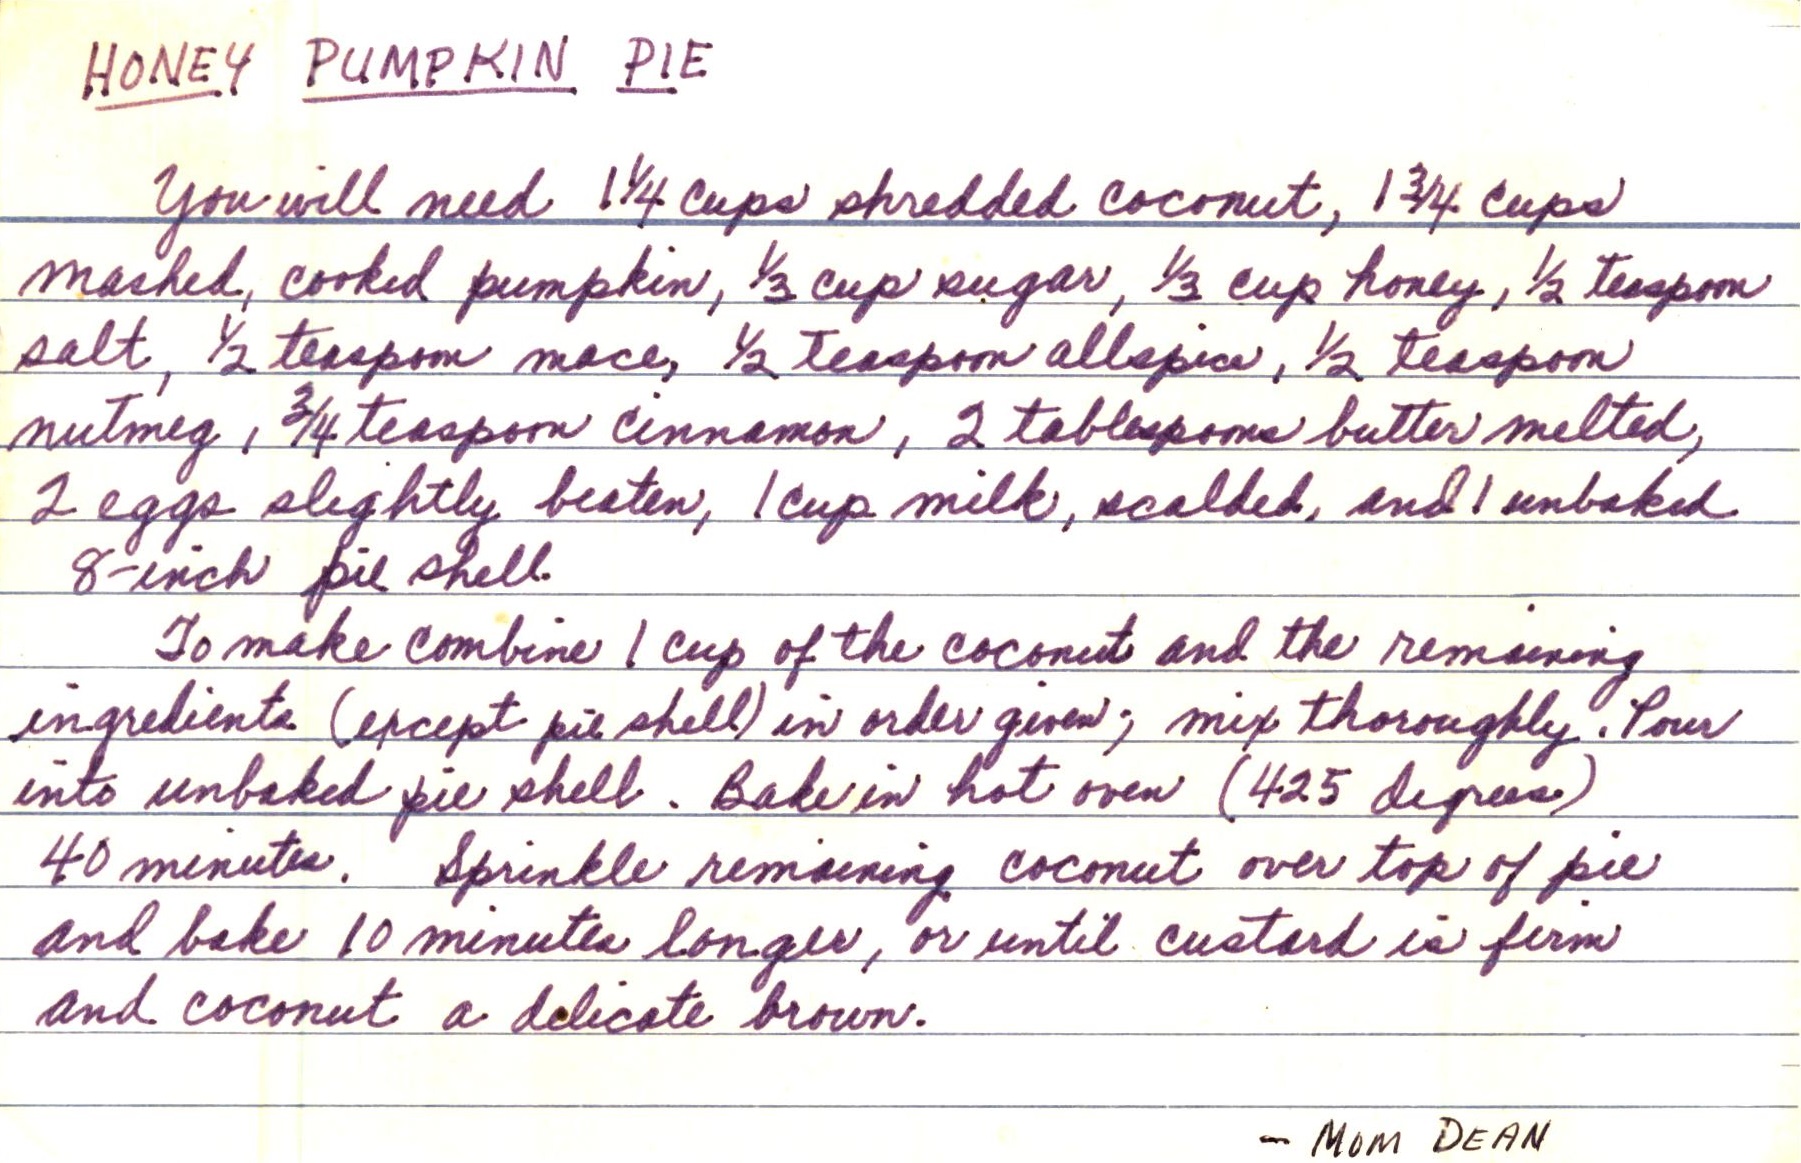 HONEY PUMPKIN PIE
You will need 1 1/4 cups shredded coconut, 1 3/4 cups
mashed, cooked pumpkin, 1/3 cup sugar, 1/3 cup honey, 1/2 teaspoon
salt, 1/2 teaspoon mace, 1/2 teaspoon allspice, 1/2 teaspoon
nutmeg, 3/4 teaspoon cinnamon, 2 tablespoons butter melted,
2 eggs slightly beaten, 1 cup milk, scalded, and 1 unbaked
8-inch pie shell.
To make combine 1 cup of the coconut and the remaining
ingredients (except pie shell) in order given; mix thoroughly. Pour
into unbaked pie shell. Bake in hot oven (425 degrees)
40 minutes. Sprinkle remaining coconut over top of pie
and bake 10 minutes longer, or until custard is firm
and coconut a delicate brown.
- MOM DEAN